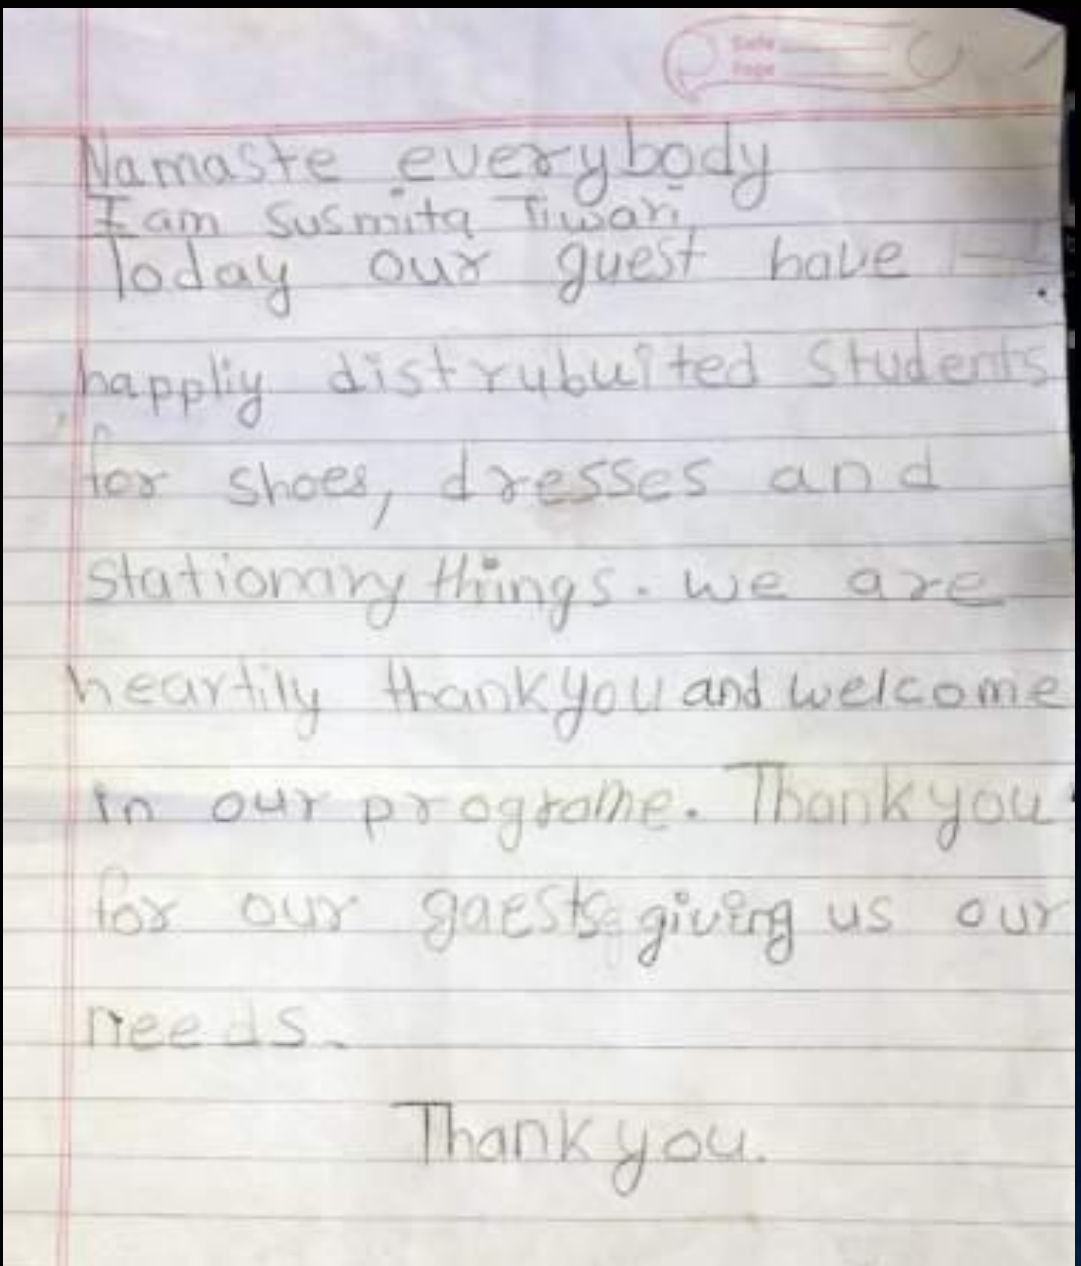 Date
Page
Namaste everybody
I am Susmita Tiwari,
Today our guest have
happliy distrubuited Students
for shoes, dresses and
stationary things. we are
heartily thank you and welcome
in our programe. Thank you
for our gaests giving us our
needs.
Thank you.